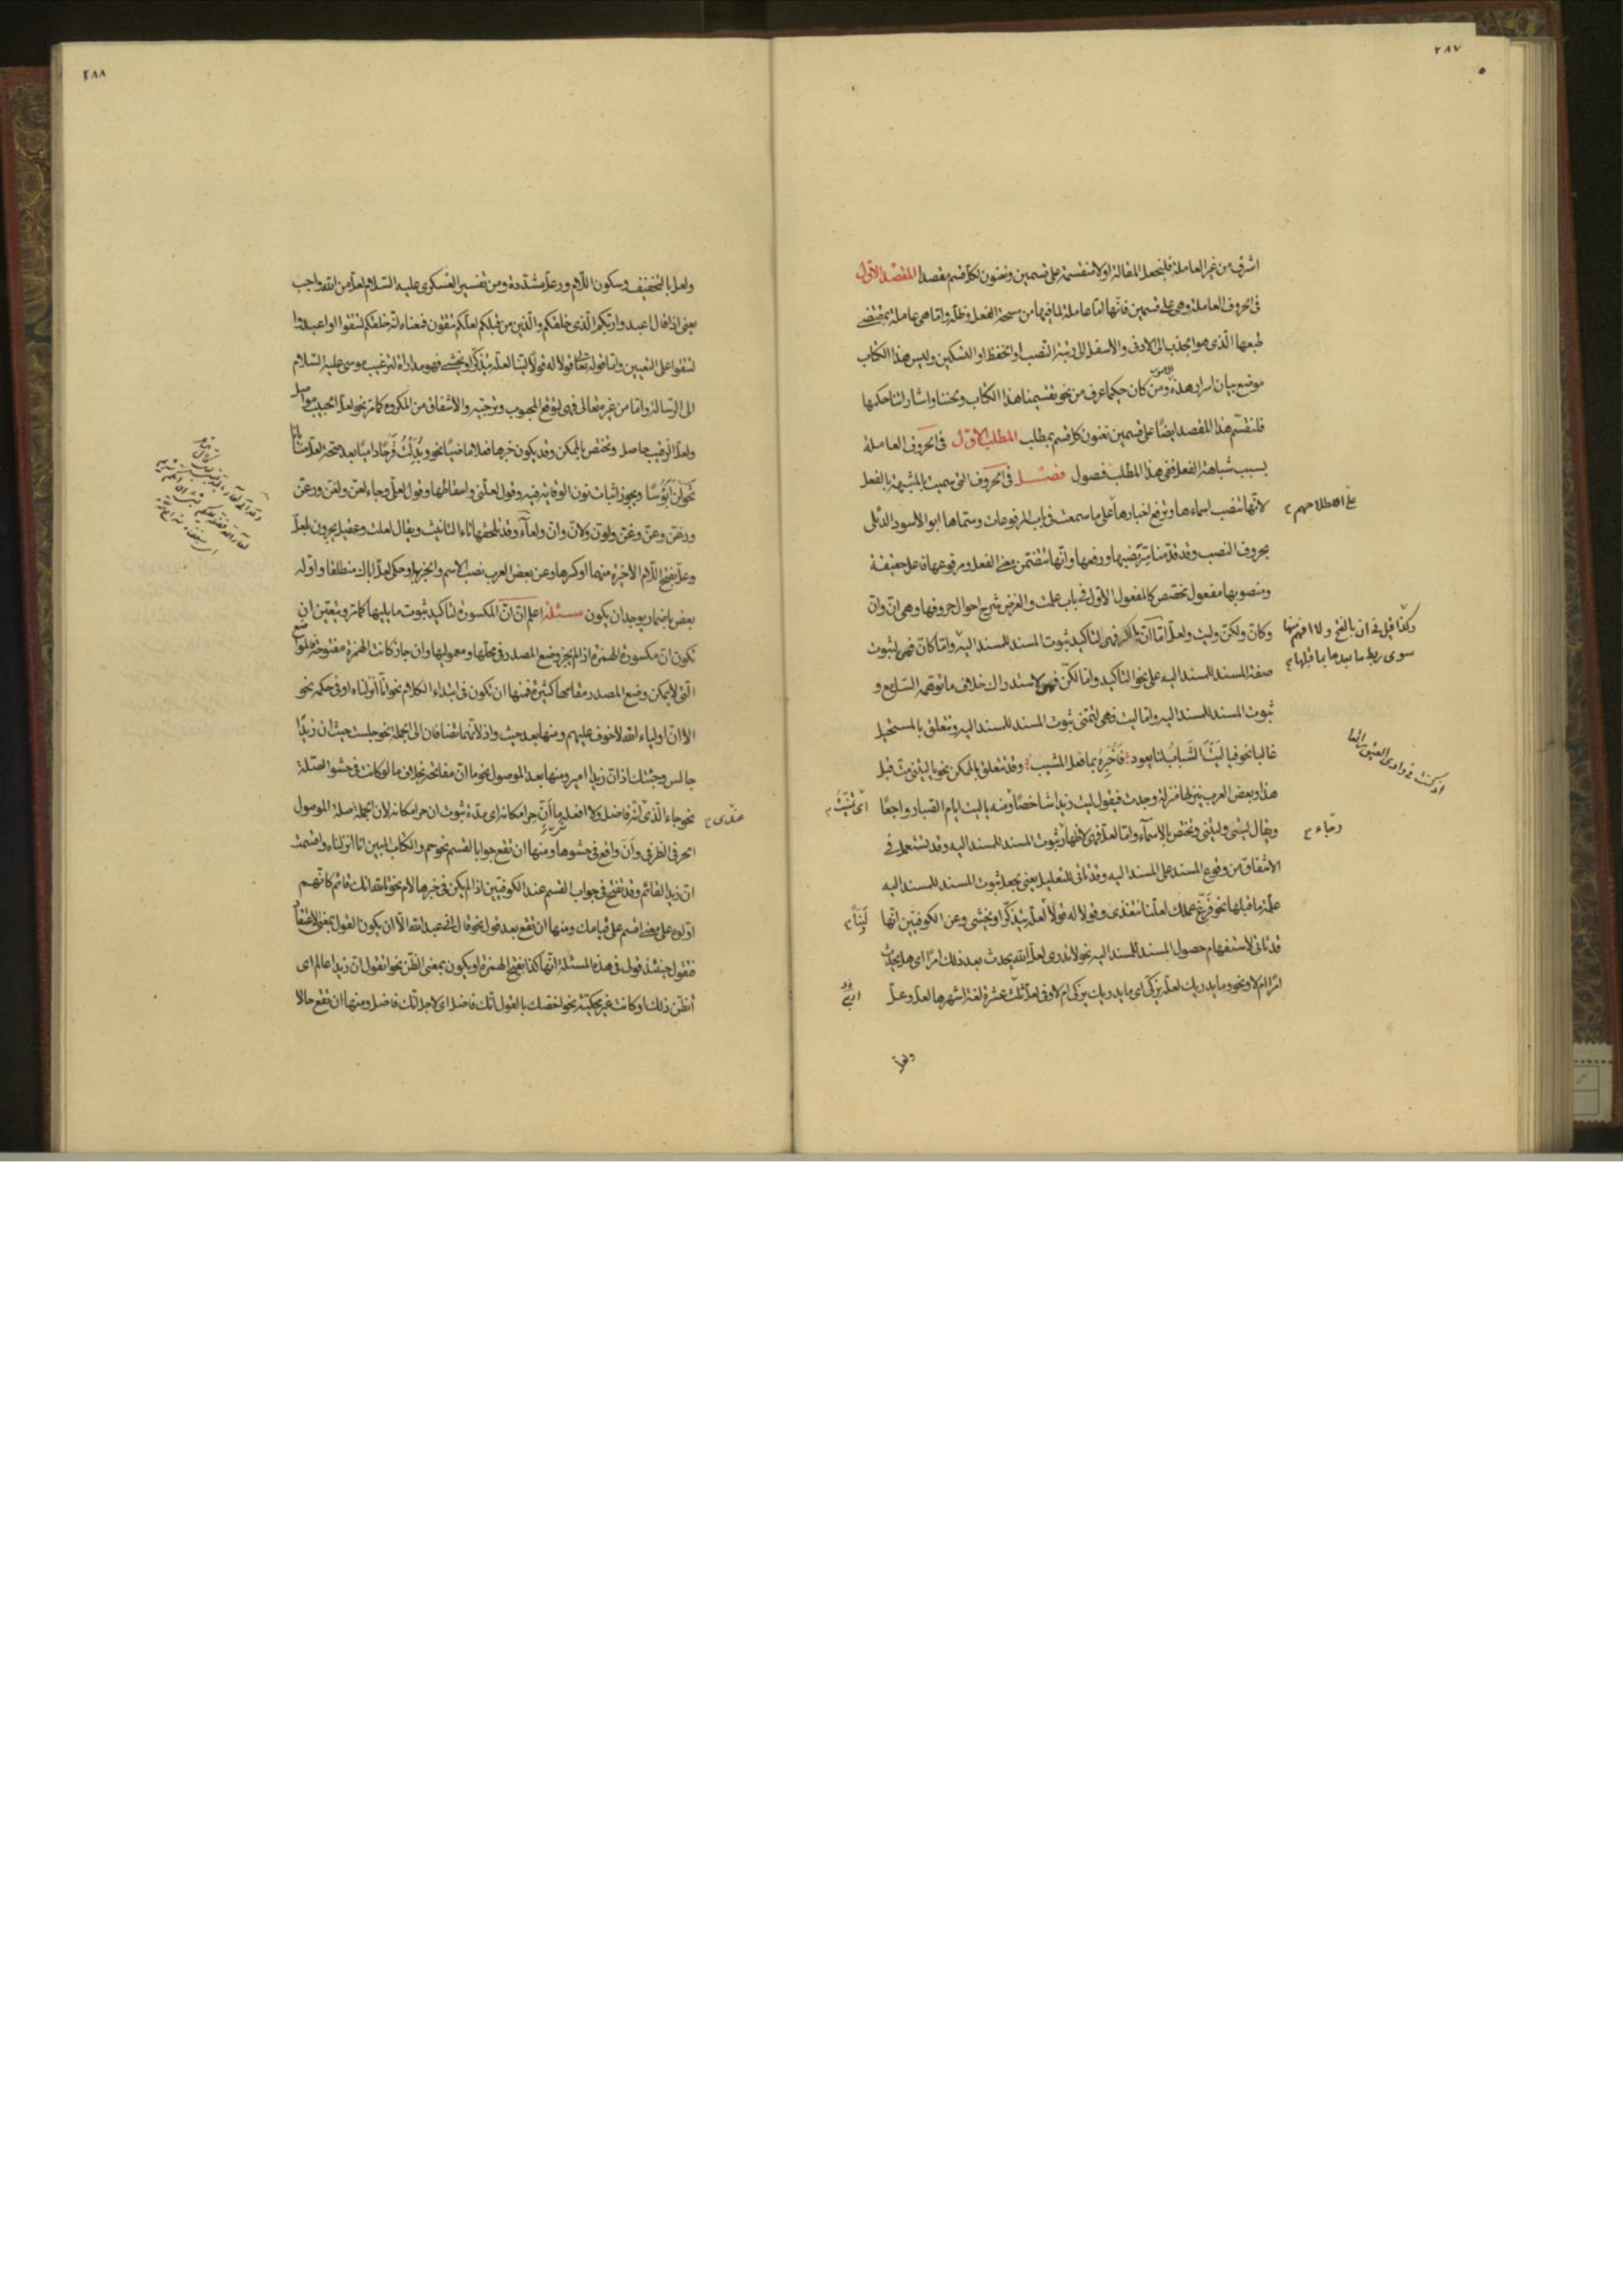 ٢٨٧
اشرف من غير العاملة فلنجعل المقالة اولا منقسمة على قسمين ونعنون لكل قسم مقصدا المقصد الاول
فى الحروف العاملة وهى على قسمين فانها اما عاملة لما فيها من مسحة الفعل وظله واما هى عاملة بمقتضى
طبعها الذى هو الجذب الى الادنى والاسفل الى رتبة النصب او الخفظ او التسكين وليس هذا الكتاب
موضع بيان اسرار هذه الامور ومن كان حكيما عرف من نحو تقسيمنا هذا الكتاب وبحثنا واشاراتنا حكمها
فلنقسم هذا المقصد ايضا على قسمين نعنون كل قسم بمطلب المطلب الاول فى الحروف العاملة
بسبب شباهة الفعل ففى هذا المطلب فصول فصل فى الحروف التى سميت بالمشبهة بالفعل
لانها تنصب اسماءها وترفع اخبارها على ما سمعت فى باب المرفوعات وسماها ابو الاسود الدئلى
على اصطلاحهم
بحروف النصب وقد قدمنا سر نصبها ورفعها وانها تتضمن معنى الفعل ومرفوعها فاعل حقيقة
ومنصوبها مفعول تخصص كالمفعول الاول فى باب علمت والغرض شرح احوال حروفها وهى ان وان
وكان ولكن وليت ولعل اما ان بالكسر فهى لتاكيد ثبوت المسند للمسند اليه واما كان فهى لثبوت
وكذا قيل فى ان بالفتح ولا افهم منها
سوى ربط ما بعدها بما قبلها
صفة المسند للمسند اليه على نحو التاكيد واما لكن فهى لاستدراك خلاف ما توهمه السامع و
ثبوت المسند للمسند اليه واما ليت فهى لتمنى ثبوت المسند للمسند اليه وتتعلق بالمستحيل
غالبا نحو فيا ليت الشباب لنا يعود فاخبره بما فعل المشيب وقد تتعلق بالممكن نحو يا ليتنى مت قبل
هذا وبعض العرب ينزلها منزلة وجدت فيقول ليت زيدا شاخصا ومنه يا ليت ايام الصبا رواجعا
ويقال ليتى وليتنى وتختص بالاسماء واما لعل فهى لاظهار ثبوت المسند للمسند اليه وقد تستعمل فى
رجاء
الاشفاق من وقوع المسند على المسند اليه وقد تاتى للتعليل يعنى يجعل ثبوت المسند للمسند اليه
علة ما قبلها نحو فرغ عملك لعلنا نتغدى وقولا له قولا لعله يتذكر او يخشى وعن الكوفيين انها
لينا
قد تاتى لاستفهام حصول المسند للمسند اليه نحو لا تدرى لعل الله يحدث بعد ذلك امرا اى هل يحدث
امرا ام لا ونحو وما يدريك لعله يزكى اى ما يدريك يزكى ام لا وفى لعل ثلث عشرة لغة اشهرها لعل وعل
ولعل
٢٨٨
ولعل بالتخفيف وسكون اللام ورعل مشددة ومن تفسير العسكرى عليه السلام لعل من الله واجب
يعنى اذا قال اعبدوا ربكم الذى خلقكم والذين من قبلكم لعلكم تتقون فمعناه انه خلقكم لتتقوا او اعبدوا
لتتقوا على التعيين واما قوله تعالى فقولا له قولا لينا لعله يتذكر او يخشى فهو مداراة لترغيب موسى عليه السلام
الى الرسالة واما من غيره تعالى فهى لتوقع المحبوب وترجيه والاشفاق من المكروه كما مر نحو لعل الحبيب مواصل
ولعل الرقيب حاصل وتختص بالممكن وقد يكون خبرها فعلا ماضيا نحو وبدلت قرحا داميا بعد صحة لعل منايانا
تحولن ابؤسا ويجوز اثبات نون الوقاية فيه وقول لعلنى واسقاطها وقول لعلى وجاء لعن ولغن ورعن
ورغن وعن وغن ولون ولان وان ولعاء وقد تلحقها تاء التانيث ويقال لعلت وعقيل يجرون بلعل
وعل بفتح اللام الاخيرة منهما او كسرها وعن بعض العرب نصب الاسم والخبر بها وحكى لعل اباك منطلقا واوله
بعض باضمار يوجد ان يكون مسئلة اعلم ان ان المكسورة لتاكيد ثبوت ما يليها كما مر ويتعين ان
تكون ان مكسورة الهمزة اذا لم يجز وضع المصدر فى محلها ومعموليها وان جاز كانت الهمزة مفتوحة فالمواضع
التى لا يمكن وضع المصدر مقامها كثيرة فمنها ان تكون فى ابتداء الكلام نحو انا انزلناه او فى حكمه نحو
الا ان اولياء الله لا خوف عليهم ومنها بعد حيث واذ لانهما تضافان الى الجملة نحو جلست حيث ان زيدا
جالس وجئتك اذ ان زيدا امير ومنها بعد الموصول نحو ما ان مفاتحه بخلاف ما لو كانت فى حشو الصلة
نحو جاء الذى انه فاضل ولا افعله ما ان حراء مكانه اى مدة ثبوت ان حراء مكانه لان الجملة صلة الموصول
عندى
الحرفى الظرفى وان واقع فى حشوها ومنها ان تقع جوابا لقسم نحو حم والكتاب المبين انا انزلناه واقسمت
ان زيدا لقائم وقد تفتح فى جواب القسم عند الكوفيين اذا لم يكن فى خبرها لام نحو تالله انك قائم كانهم
اولوه على معنى اقسم على قيامك ومنها ان تقع بعد قول نحو قال انى عبد الله الا ان يكون القول بمعنى الاعتقاد
فتقول حينئذ قول فى هذه المسئلة انها كذا بفتح الهمزة او يكون بمعنى الظن نحو اتقول ان زيدا عالم اى
أتظن ذلك او كانت غير محكية نحو اخصك بالقول انك فاضل اى لاجل انك فاضل ومنها ان تقع حالا